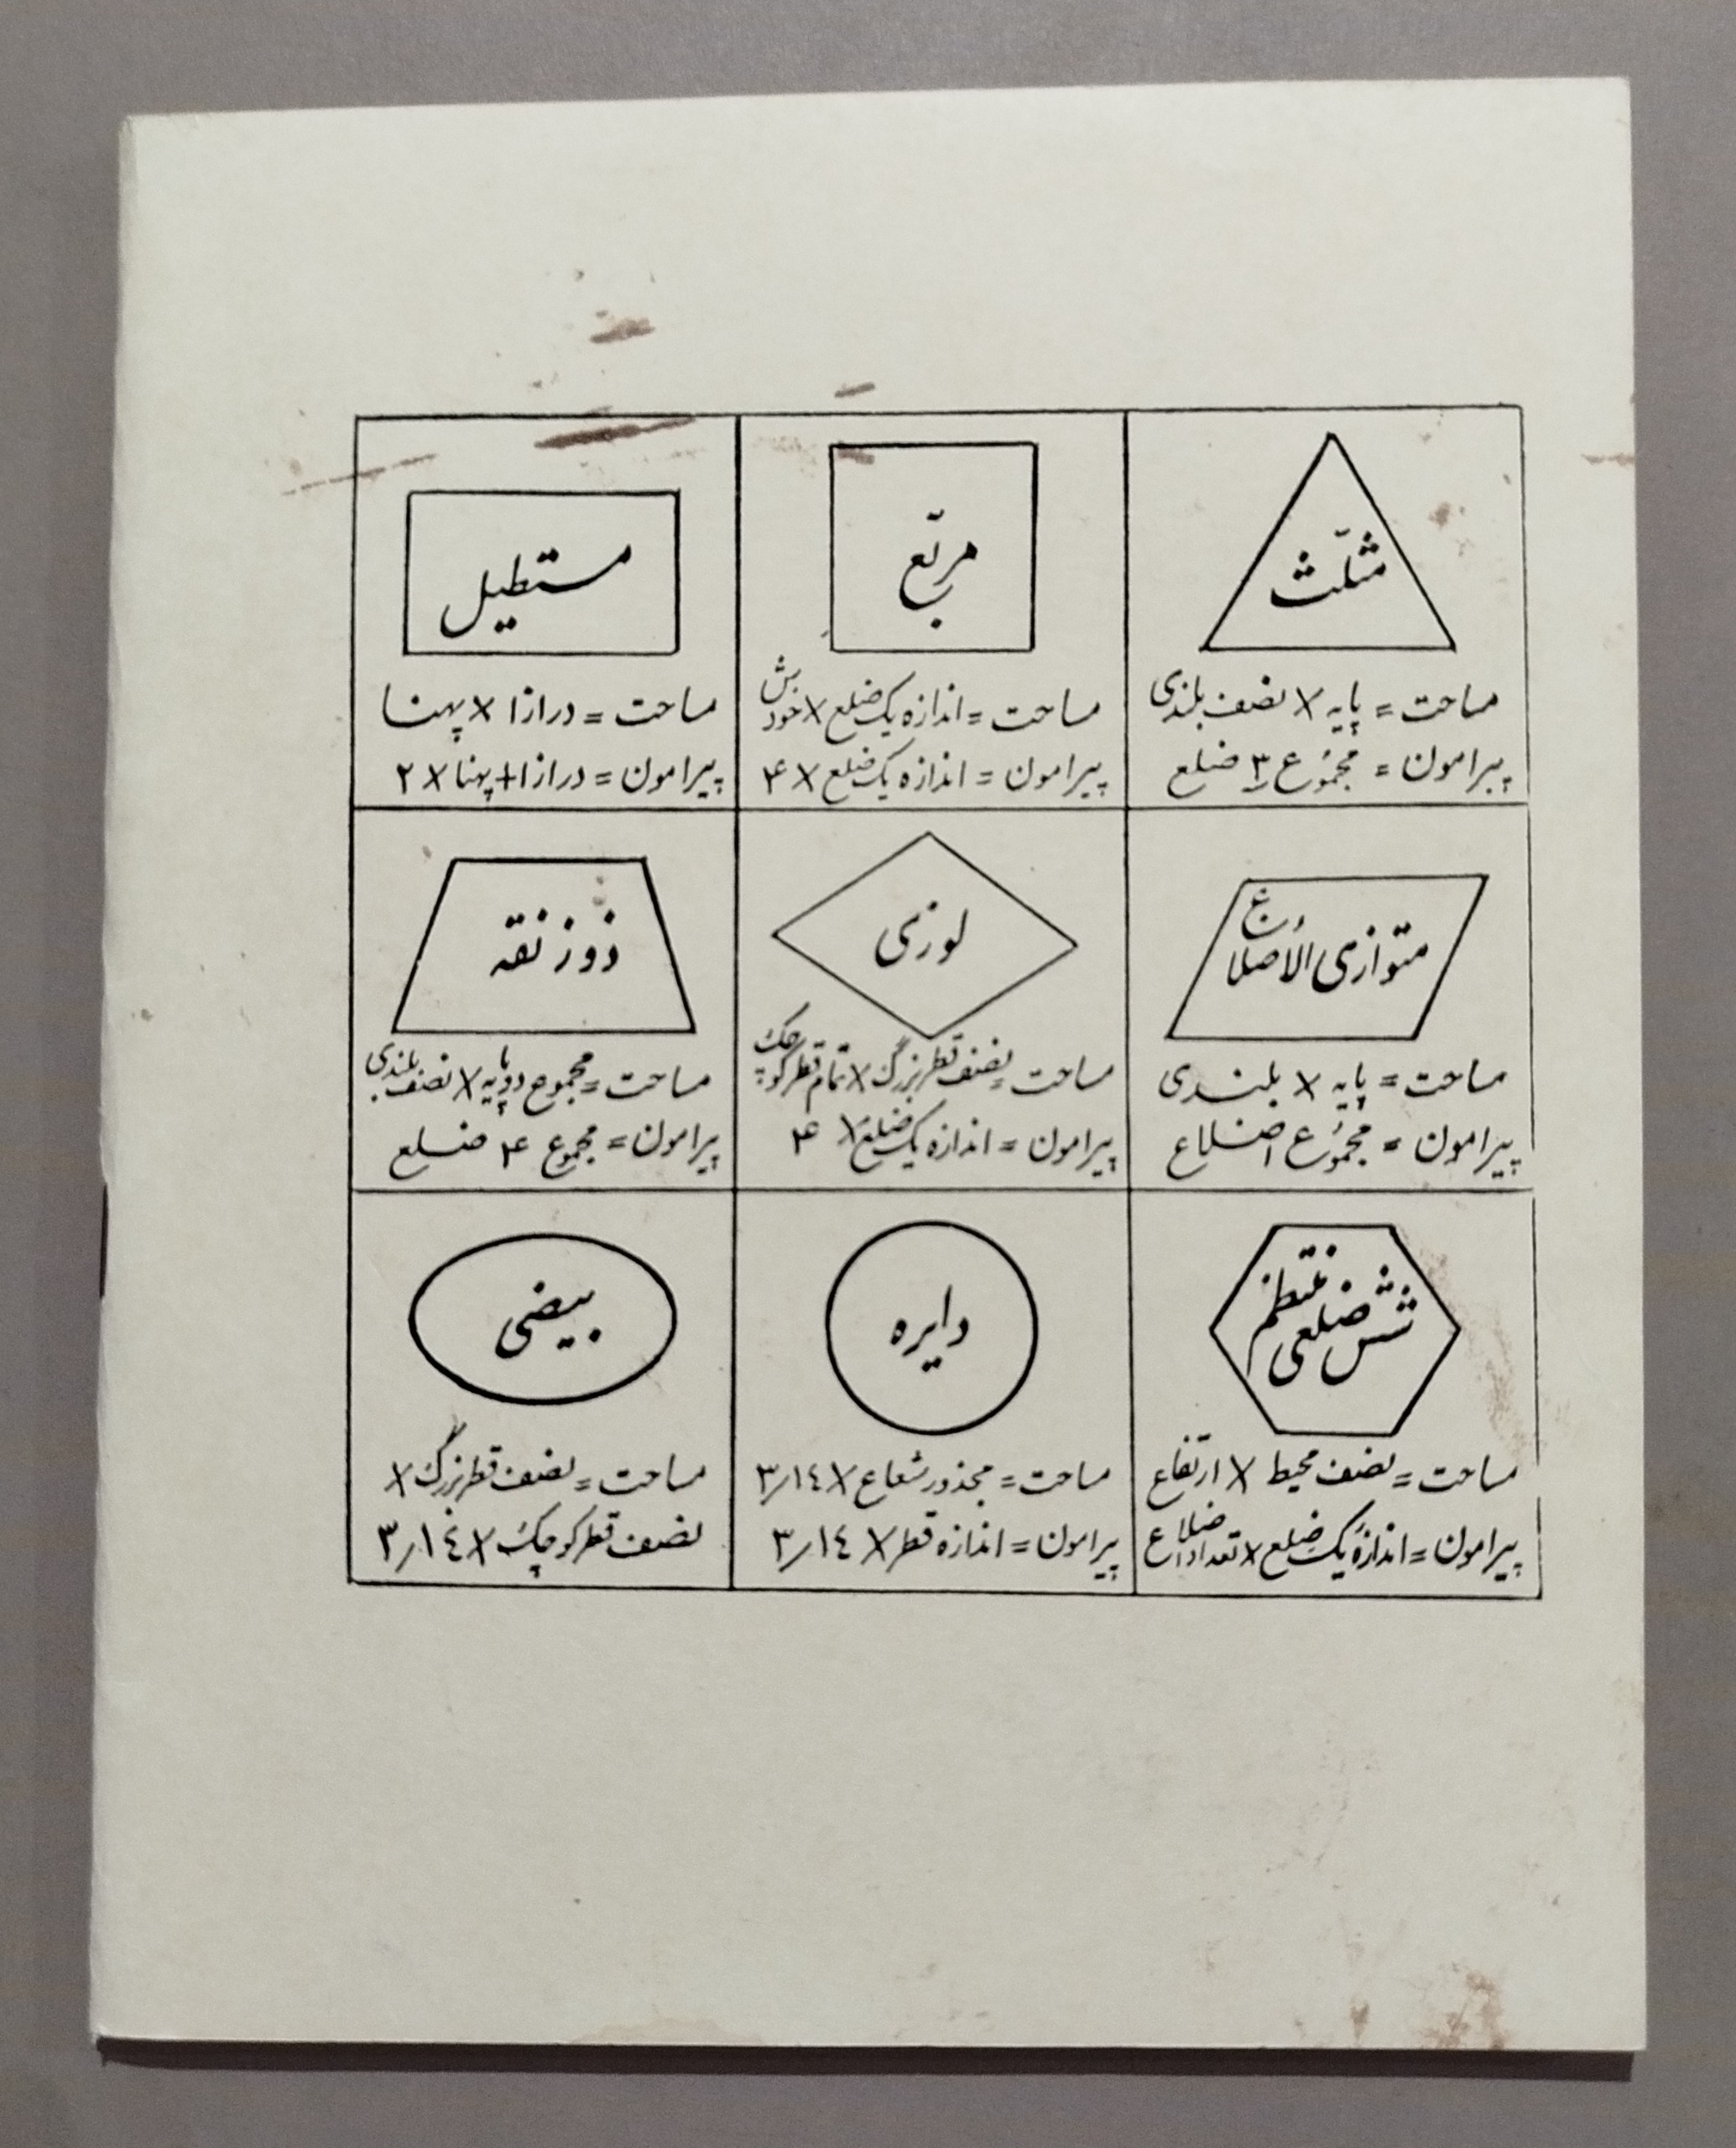 مثلّث
مساحت = پایه × نصف بلندی
پیرامون = مجموُع ۳ ضلع
مربّع
مساحت = اندازه یک ضلع × خودش
پیرامون = اندازه یک ضلع × ۴
مستطیل
مساحت = درازا × پهنا
پیرامون = درازا + پهنا × ۲
متوازی الأضلاع
مساحت = پایه × بلندی
پیرامون = مجموُع اضلاع
لوزی
مساحت = نصف قطر بزرگ × تمام قطر کوچک
پیرامون = اندازه یک ضلع × ۴
ذوزنقه
مساحت = مجموع دو پایه × نصف بلندی
پیرامون = مجموع ۴ ضلع
شش ضلعی منتظم
مساحت = نصف محیط × ارتفاع
پیرامون = اندازهٔ یک ضلع × تعداد اضلاع
دایره
مساحت = مجذور شعاع × ۳٫۱٤
پیرامون = اندازه قطر × ۳٫۱٤
بیضی
مساحت = نصف قطر بزرگ ×
نصف قطر کوچک × ۳٫۱٤